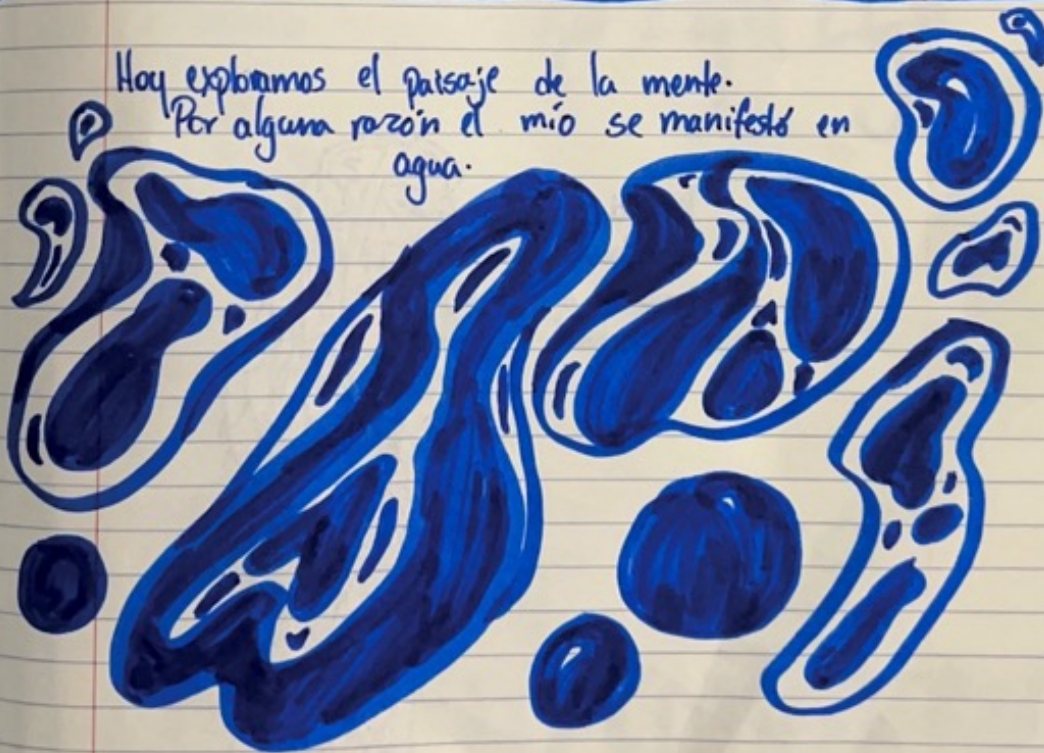 Hoy exploramos el paisaje de la mente.
Por alguna razón el mío se manifestó en
agua.